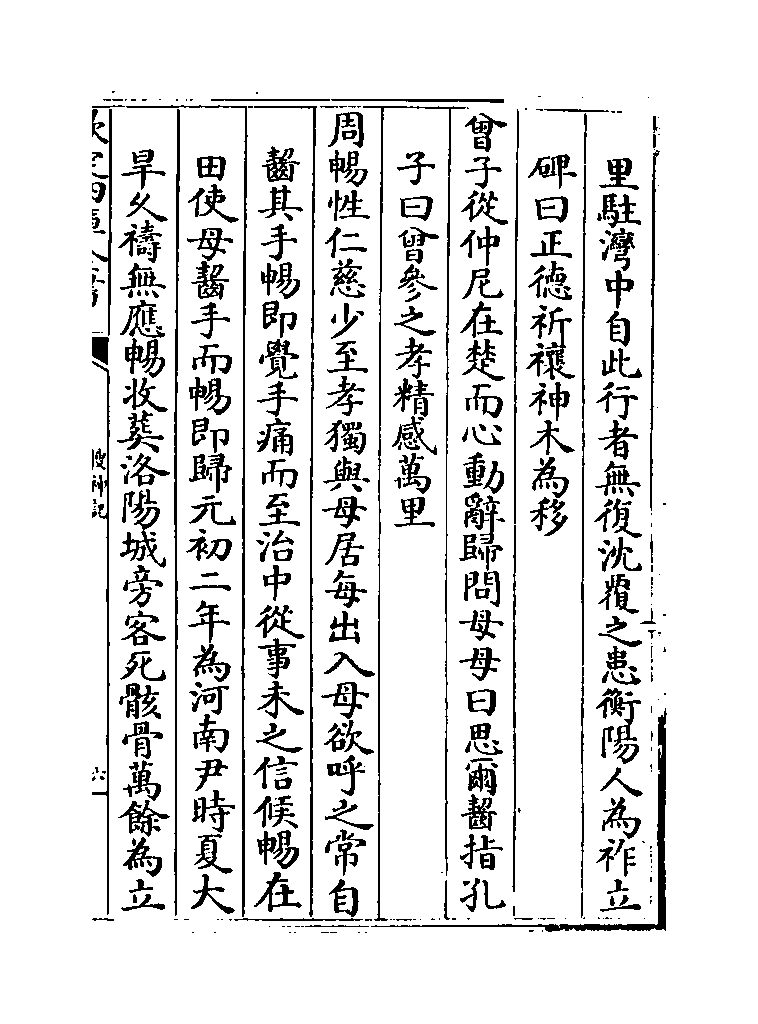 里駐灣中自此行者無復沈覆之患衡陽人為祚立
碑曰正德祈禳神木為移
曾子從仲尼在楚而心動辭歸問母母曰思爾齧指孔
子曰曾參之孝精感萬里
周暢性仁慈少至孝獨與母居每出入母欲呼之常自
齧其手暢即覺手痛而至治中從事未之信候暢在
田使母齧手而暢即歸元初二年為河南尹時夏大
旱久禱無應暢收葬洛陽城旁客死骸骨萬餘為立
搜神記
六